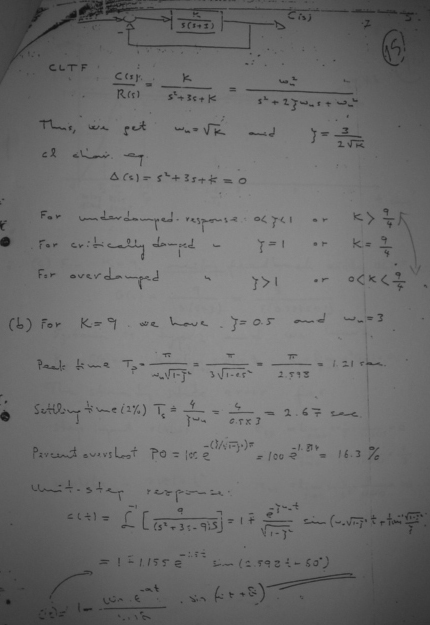 K / s(s+3) C(s)
15
CLTF
C(s)/R(s) = K/(s²+3s+K) = ωn²/(s²+2ζωn s+ωn²)
Thus, we get ωn = √K and ζ = 3/(2√K)
cl char eq
Δ(s) = s²+3s+K = 0
For underdamped response 0<ζ<1 or K > 9/4
For critically damped " ζ=1 or K = 9/4
For overdamped " ζ>1 or 0<K<9/4
(b) For K=9 we have ζ=0.5 and ωn=3
Peak time Tp = π/(ωn√(1-ζ²)) = π/(3√(1-.25)) = π/2.598 = 1.21 sec.
Settling time (2%) Ts = 4/(ζωn) = 4/(0.5×3) = 2.67 sec.
Percent overshoot PO = 100 e^-(ζ/√(1-ζ²))π = 100 e^-1.81 = 16.3 %
Unit-step response:
c(t) = L⁻¹[9/((s²+3s+9)s)] = 1 -
= 1 - 1.155 e^-1.5t sin (2.598t + 60°)
c(t) = 1 -